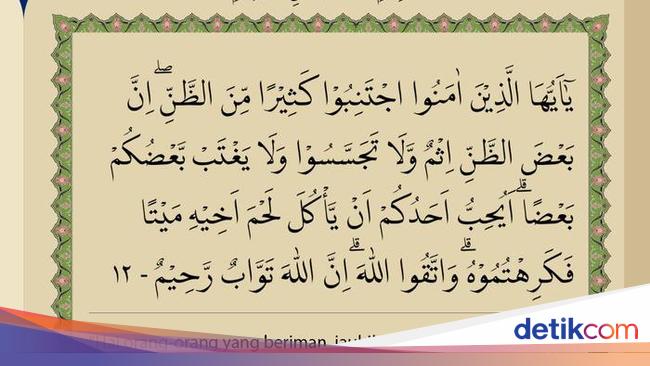 يٰٓاَيُّهَا الَّذِيْنَ اٰمَنُوا اجْتَنِبُوْا كَثِيْرًا مِّنَ الظَّنِّۖ اِنَّ
بَعْضَ الظَّنِّ اِثْمٌ وَّلَا تَجَسَّسُوْا وَلَا يَغْتَبْ بَّعْضُكُمْ
بَعْضًاۗ اَيُحِبُّ اَحَدُكُمْ اَنْ يَّأْكُلَ لَحْمَ اَخِيْهِ مَيْتًا
فَكَرِهْتُمُوْهُۗ وَاتَّقُوا اللّٰهَ ۗاِنَّ اللّٰهَ تَوَّابٌ رَّحِيْمٌ - ١٢
orang-orang yang beriman
detikcom